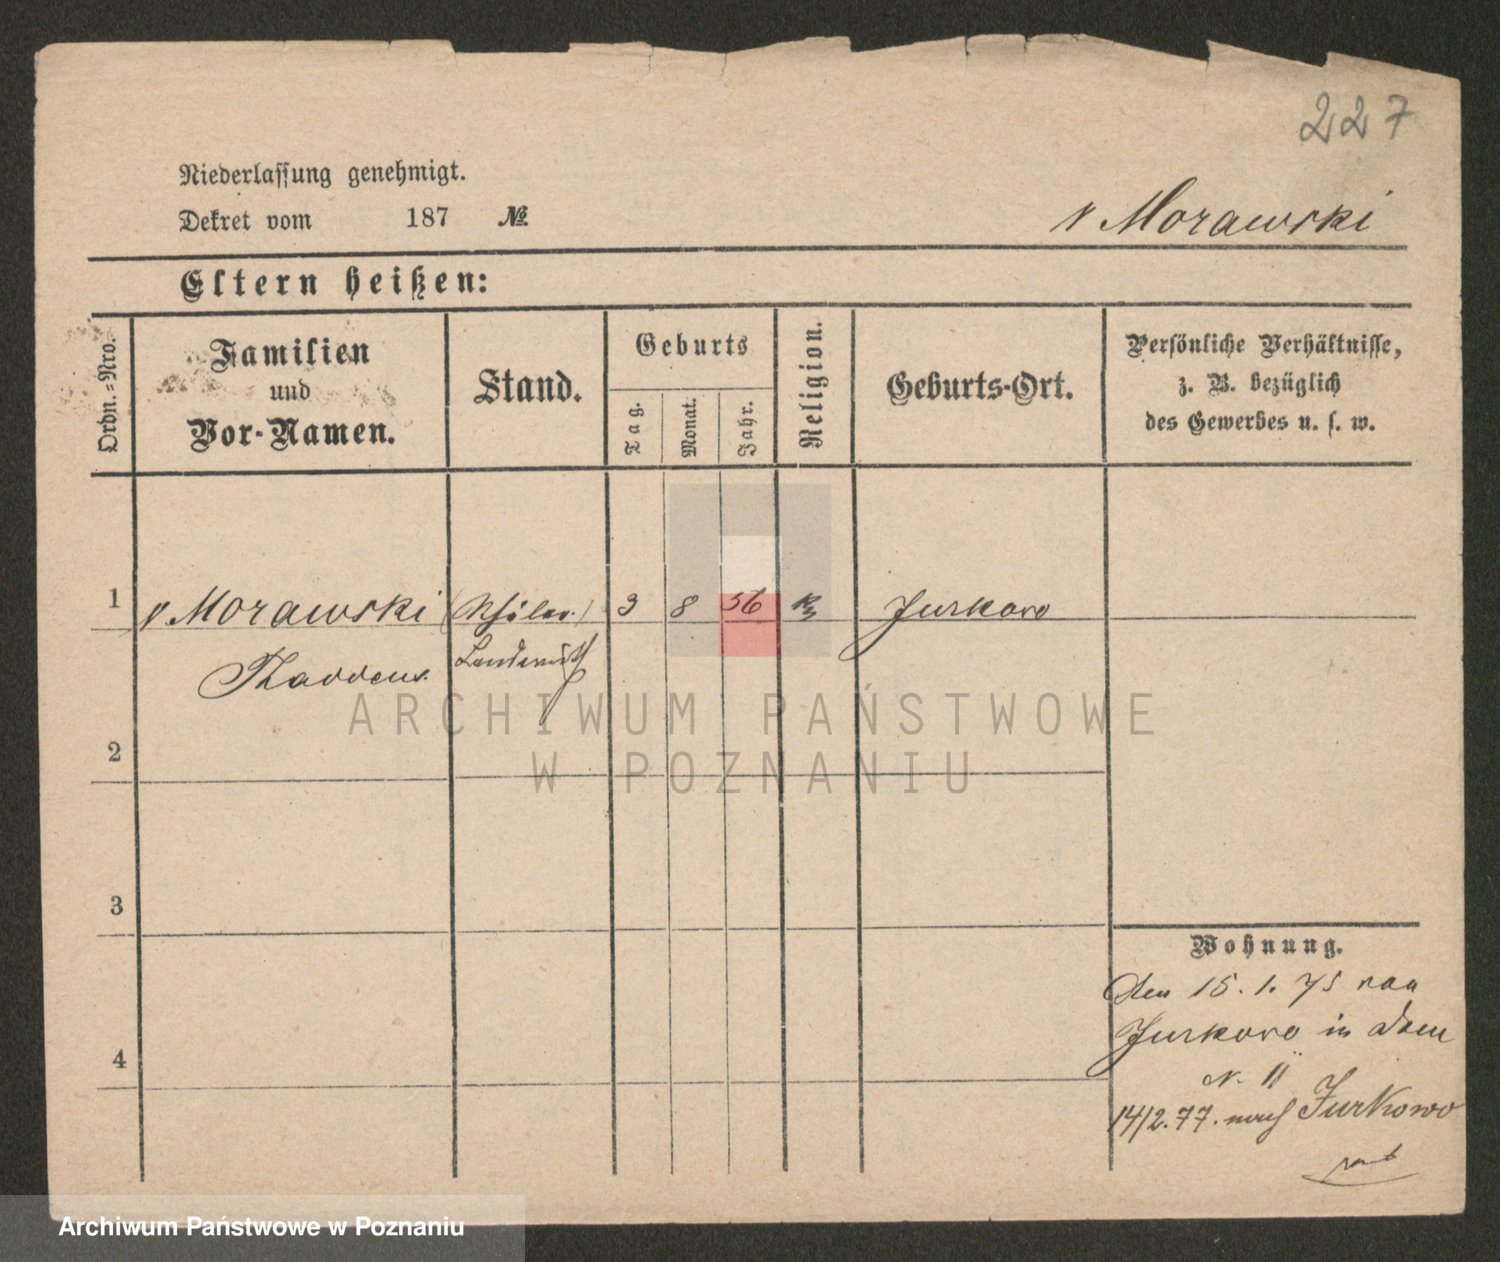 227
Niederlassung genehmigt.
Dekret vom 187 №
v Morawski
Eltern heißen:
Ordn.-Nro.
Familien
und
Vor-Namen.
Stand.
Geburts
Tag.
Monat.
Jahr.
Religion.
Geburts-Ort.
Persönliche Verhältnisse,
z. B. bezüglich
des Gewerbes u. s. w.
1 v Morawski (Schüler.) 3 8 56 Jurkowo
Thaddeus Landwirth
2
3
4
Wohnung.
Den 15. 1. 75 von
Jurkowo in
N. 11
14/2. 77. nach Jurkowo
ARCHIWUM PAŃSTWOWE
W POZNANIU
Archiwum Państwowe w Poznaniu